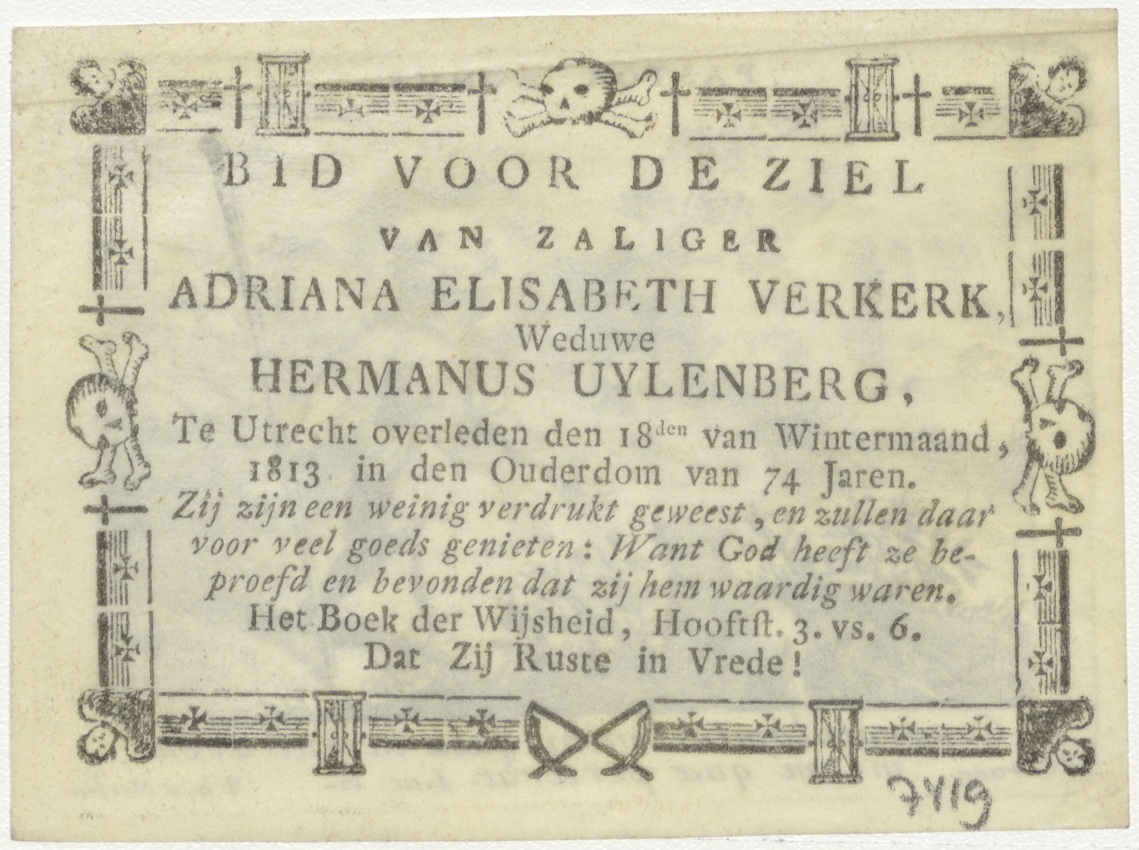 BID VOOR DE ZIEL
VAN ZALIGER
ADRIANA ELISABETH VERKERK,
Weduwe
HERMANUS UYLENBERG,
Te Utrecht overleden den 18den van Wintermaand,
1813 in den Ouderdom van 74 Jaren.
Zij zijn een weinig verdrukt geweest, en zullen daar
voor veel goeds genieten: Want God heeft ze be-
proefd en bevonden dat zij hem waardig waren.
Het Boek der Wijsheid, Hooftst. 3. vs. 6.
Dat Zij Ruste in Vrede!
7419